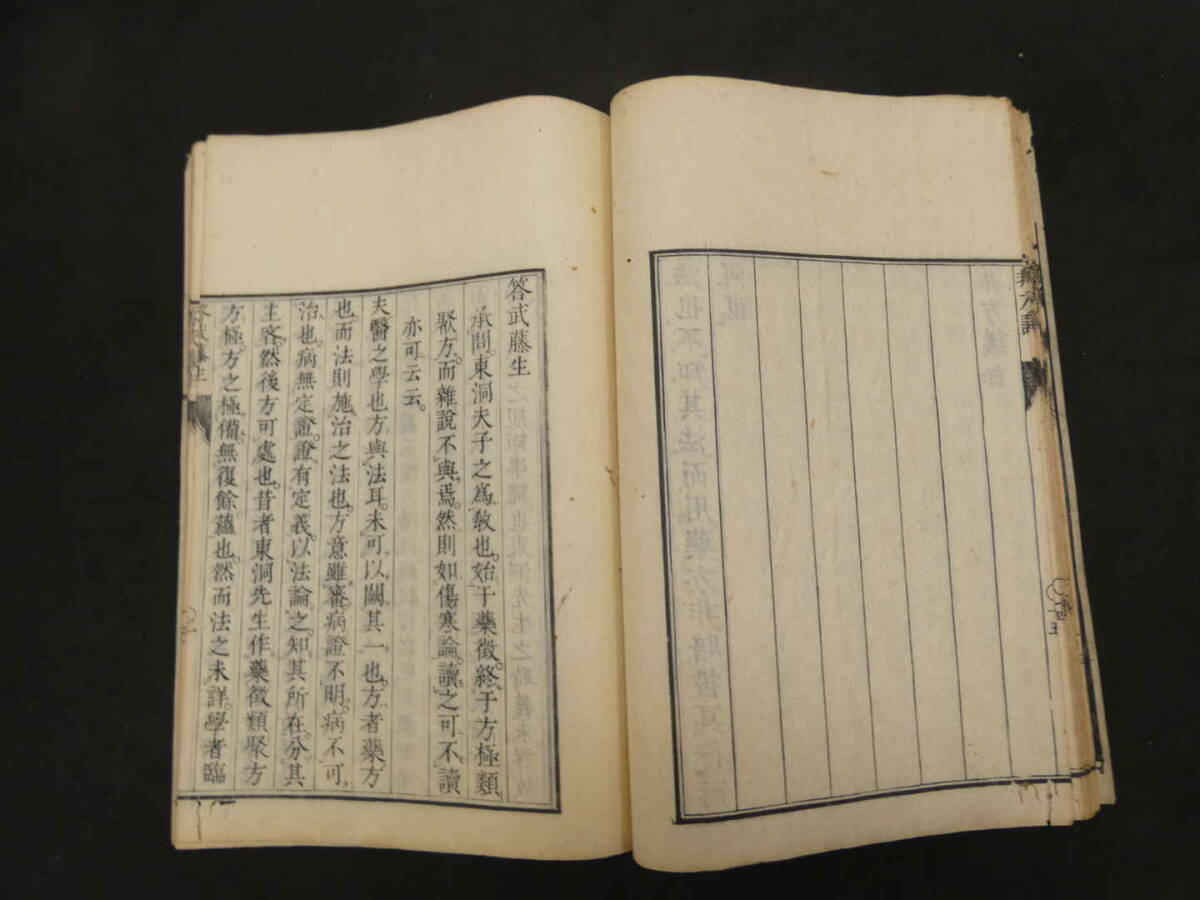 答武藤生
承問。東洞夫子之爲敎也。始于藥徵。終于方極類
聚方。而雜說不與焉。然則如傷寒論。讀之可。不讀
亦可云云。
夫醫之學也。方與法耳。未可以闕其一也。方者藥方
也。而法則施治之法也。方意雖審。病證不明。病不可
治也。病無定證。證有定義。以法論之。知其所在。分其
主客。然後方可處也。昔者東洞先生作藥徵類聚方
方極。方之極備。無復餘蘊也。然而法之未詳。學者臨